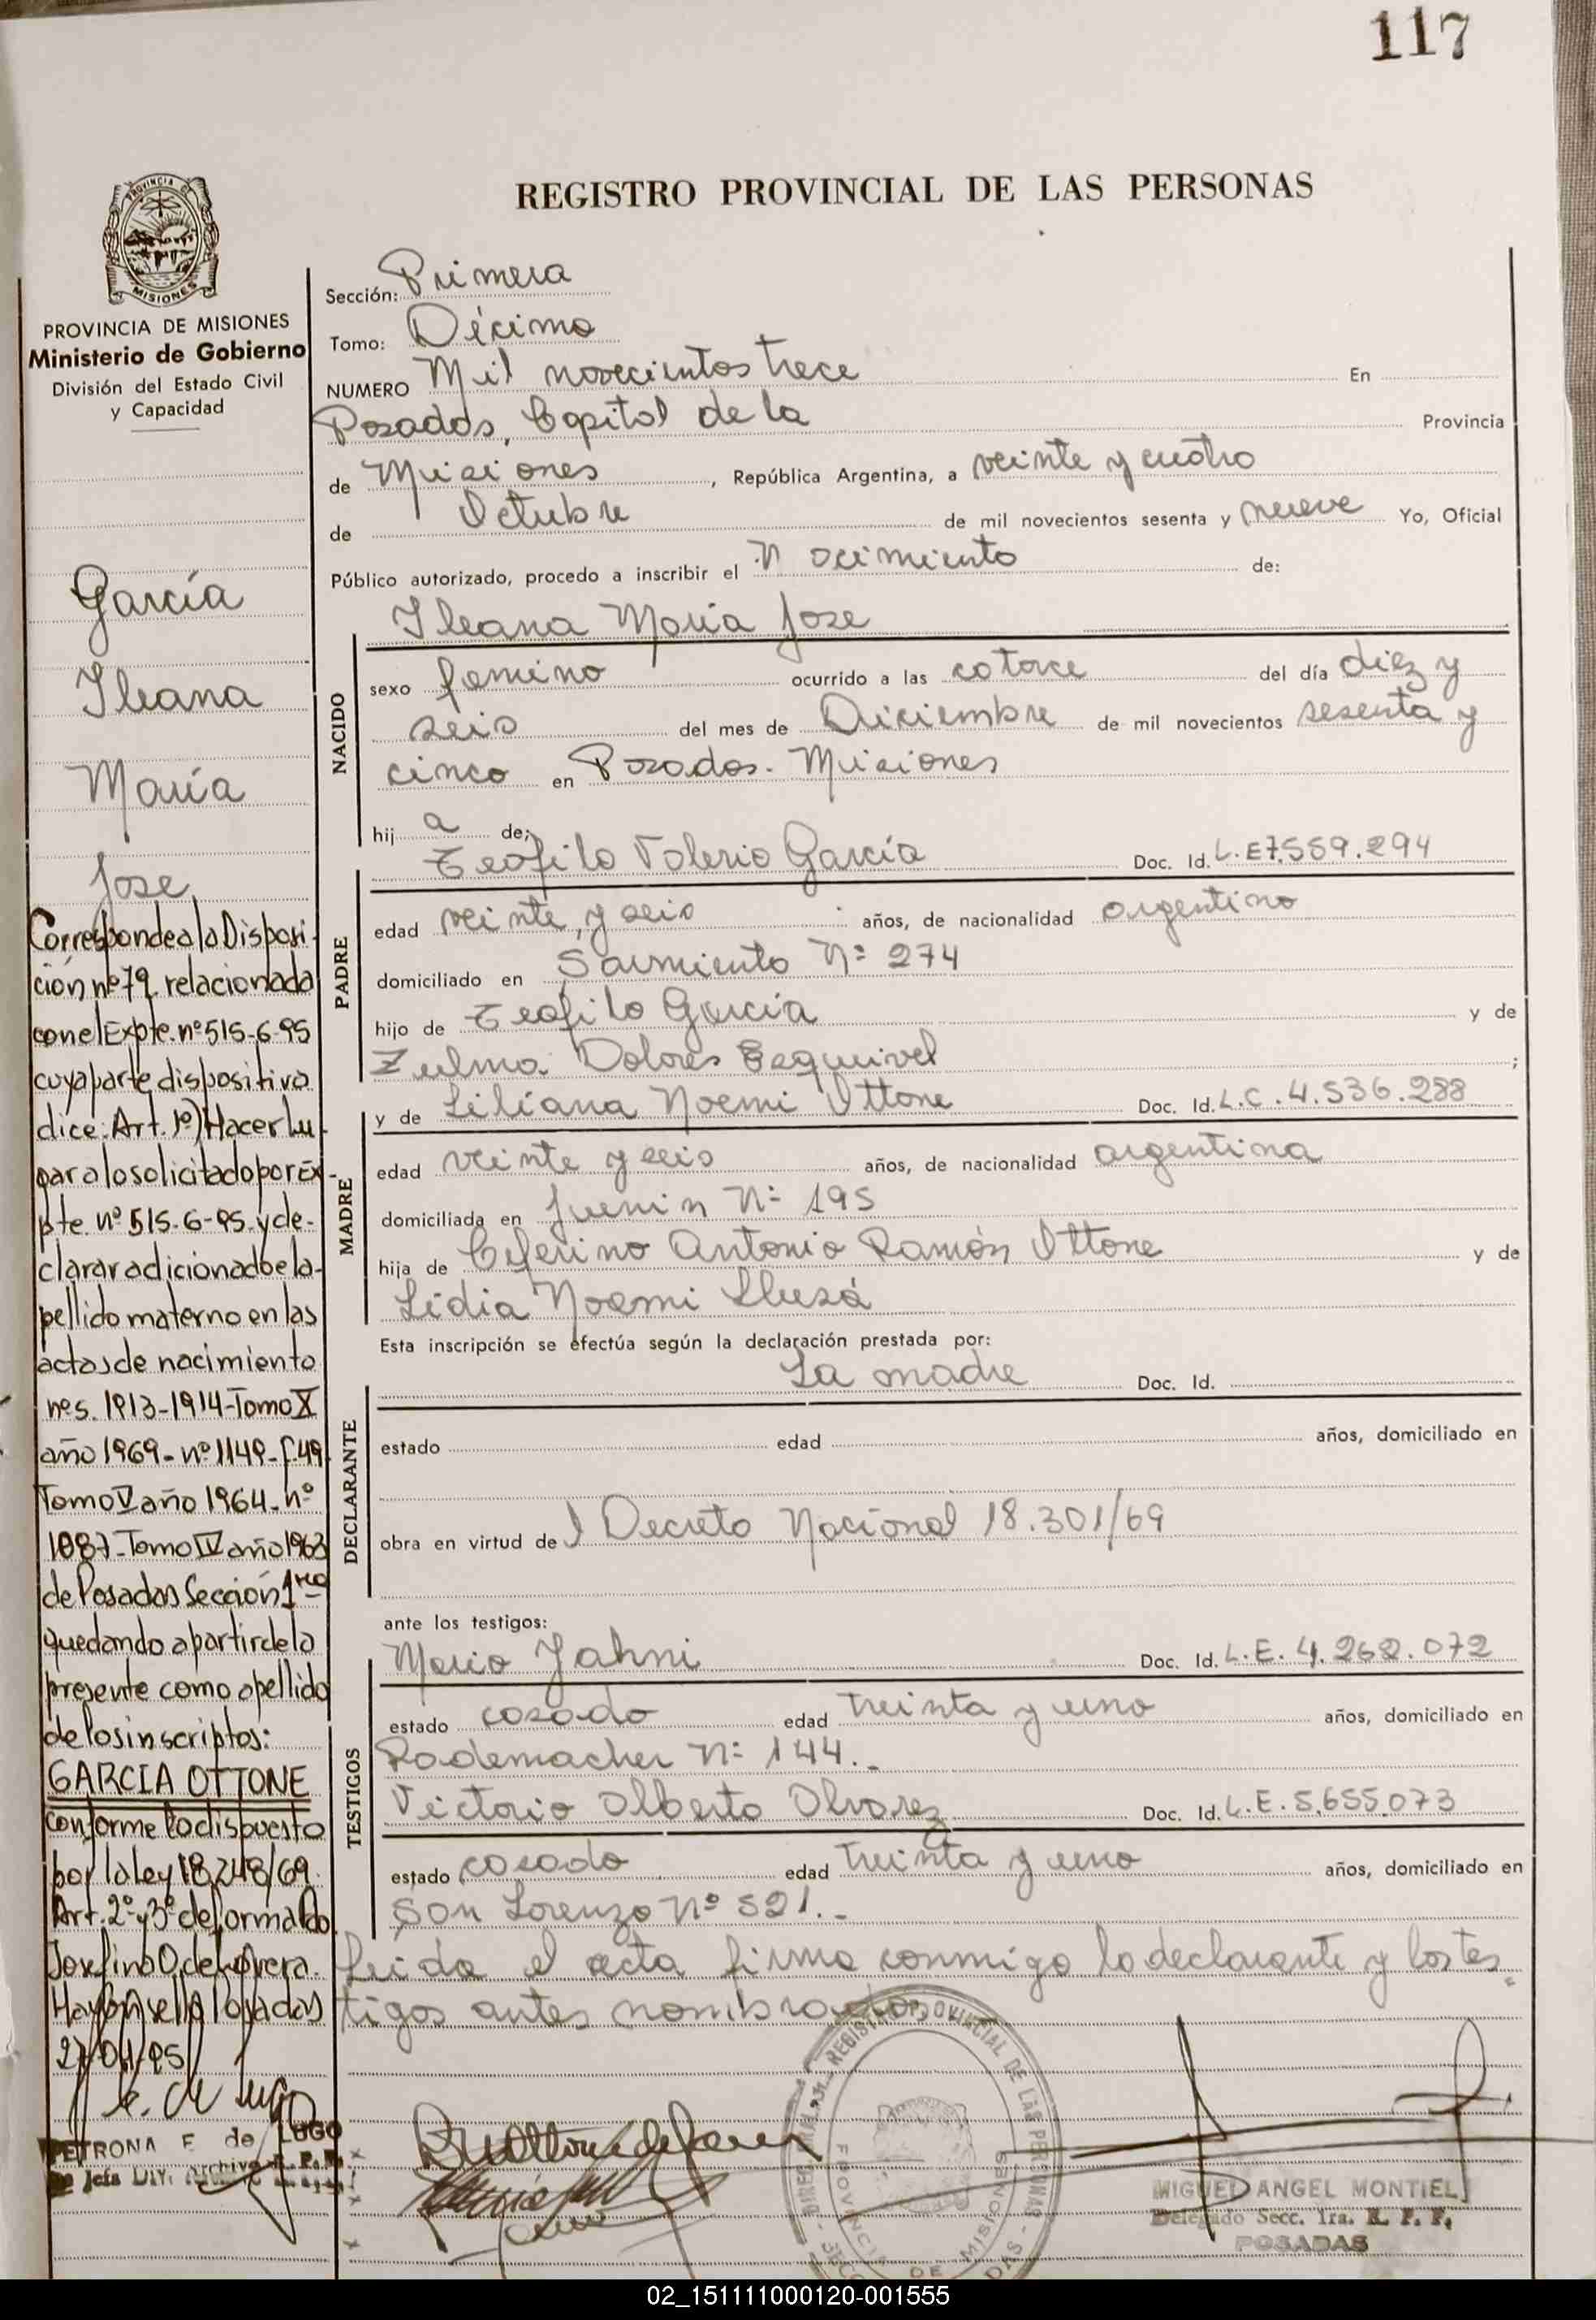 117
REGISTRO PROVINCIAL DE LAS PERSONAS
PROVINCIA DE MISIONES
PROVINCIA DE MISIONES
Ministerio de Gobierno
División del Estado Civil
y Capacidad
García
Ileana
María
Jose
Corresponde a la Disposi-
ción nº 79 relacionada
con el Expte. nº 515-6-95
cuya parte dispositiva
dice: Art. 1º) Hacer lu-
gar a lo solicitado por Ex-
pte. nº 515-6-95 y de-
clarar adicionado el a-
pellido materno en las
actas de nacimiento
nos. 1913-1914-Tomo X
año 1969- nº 1149- f. 49
Tomo V año 1964- nº
1087- Tomo IV año 1963
de Posadas Sección 1ra
quedando a partir de la
presente como apellido
de los inscriptos:
GARCIA OTTONE
conforme lo dispuesto
por la ley 18.248/69
Art. 2º y 3º de
Hay un sello Posadas
27/04/95
PETRONA F de LUGO
Sección: Primera
Tomo: Décimo
NUMERO Mil novecientos trece En
Posadas, Capital de la Provincia
de Misiones, República Argentina, a veinte y cuatro
de Octubre de mil novecientos sesenta y nueve Yo, Oficial
Público autorizado, procedo a inscribir el Nacimiento de:
Ileana María Jose
NACIDO
sexo femino ocurrido a las catorce del día diez y
seis del mes de Diciembre de mil novecientos sesenta y
cinco en Posadas. Misiones
hij a de;
Teofilo Valerio García Doc. Id. L.E 7.559.294
PADRE
edad veinte y seis años, de nacionalidad argentino
domiciliado en Sarmiento Nº 274
hijo de Teofilo García y de
Zulma Dolores Esquivel ;
y de Liliana Noemi Ottone Doc. Id. L.C. 4.536.288
MADRE
edad veinte y seis años, de nacionalidad argentina
domiciliada en Junin Nº 195
hija de Ceferino Antonio Ramón Ottone y de
Lidia Noemi Llusá
Esta inscripción se efectúa según la declaración prestada por:
La madre Doc. Id.
DECLARANTE
estado edad años, domiciliado en
obra en virtud de l Decreto Nacional 18.301/69
ante los testigos:
Mario Jahni Doc. Id. L.E. 4.262.072
TESTIGOS
estado casado edad treinta y uno años, domiciliado en
Rademacher Nº 144.-
Victorio Alberto Alvarez Doc. Id. L.E. 5.655.073
estado casado edad treinta y uno años, domiciliado en
San Lorenzo Nº 521.-
Leida el acta firma conmigo la declarante y los tes-
tigos antes nombrados
REGISTRO PROVINCIAL DE LAS PERSONAS
PROVINCIA DE MISIONES
MIGUEL ANGEL MONTIEL
Delegado Secc. 1ra. R. P. P.
POSADAS
02_151111000120-001555